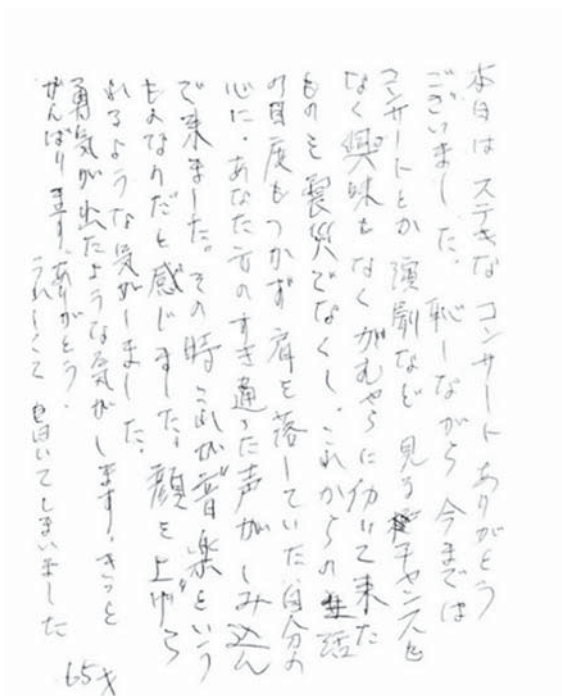 本日はステキなコンサートありがとう
ございました。恥しながら今までは
コンサートとか演劇など見るチャンスも
なく興味もなくがむしゃらに働いて来た
ものを震災でなくし、これからの生活
の目度もつかず肩を落していた自分の
心に、あなた方のすき通った声がしみ込ん
で来ました。その時これが音楽という
ものなのだと感じました。顔を上げら
れるような気がしました。
勇気が出たような気がします。きっと
がんばります。ありがとう。
うれしくて 泣いてしまいました
65才